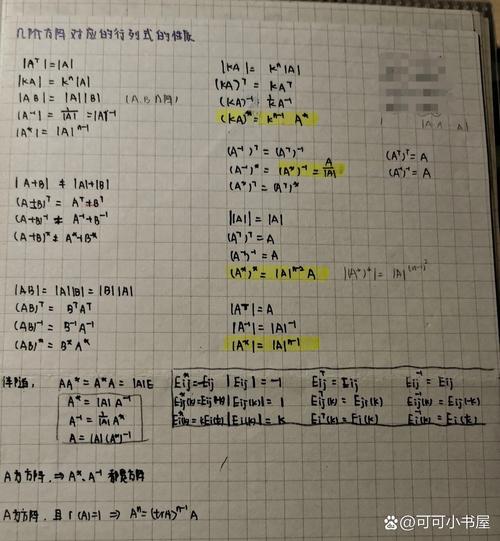 几阶方阵对应的行列式的性质
|Aᵀ|=|A|
|kA|=kⁿ|A|
|AB|=|A||B| (A.B n阶)
|A⁻¹|=1/|A|=|A|⁻¹
|A*|=|A|ⁿ⁻¹
|kA|=kⁿ|A|
(kA)ᵀ=kAᵀ
(kA)⁻¹=1/k A⁻¹
(kA)*=kⁿ⁻¹A*
(A⁻¹)ᵀ=(Aᵀ)⁻¹
(A⁻¹)*=(A*)⁻¹=A/|A|
(A*)ᵀ=(Aᵀ)*
(Aᵀ)ᵀ=A
(A⁻¹)⁻¹=A
|A+B|≠|A|+|B|
(A±B)ᵀ=Aᵀ±Bᵀ
(A+B)⁻¹≠A⁻¹+B⁻¹
(A+B)*≠A*+B*
||A||=|A|
(Aᵀ)ᵀ=A
(A⁻¹)⁻¹=A
(A*)*=|A|ⁿ⁻²A |(A*)*|=|A|^(n-1)²
|AB|=|A||B|=|B||A|
(AB)ᵀ=BᵀAᵀ
(AB)⁻¹=B⁻¹A⁻¹
(AB)*=B*A*
|Aᵀ|=A
|A⁻¹|=|A|⁻¹
|A*|=|A|ⁿ⁻¹
伴随: AA*=A*A=|A|E
A*=|A|A⁻¹
A⁻¹=1/|A| A*
A=|A|(A*)⁻¹
Eij*=-Eij |Eij|=-1 Eijᵀ=Eij Eij⁻¹=Eij
|Eij(k)|=1 Eijᵀ(k)=Eji(k) Eij⁻¹(k)=Eij(-k)
|Ei(k)|=k Eiᵀ(k)=Ei(k)
A为方阵,⇒A*、A⁻¹都是方阵
A为方阵,且r(A)=1⇒Aⁿ=(trA)ⁿ⁻¹A
@可可小书屋